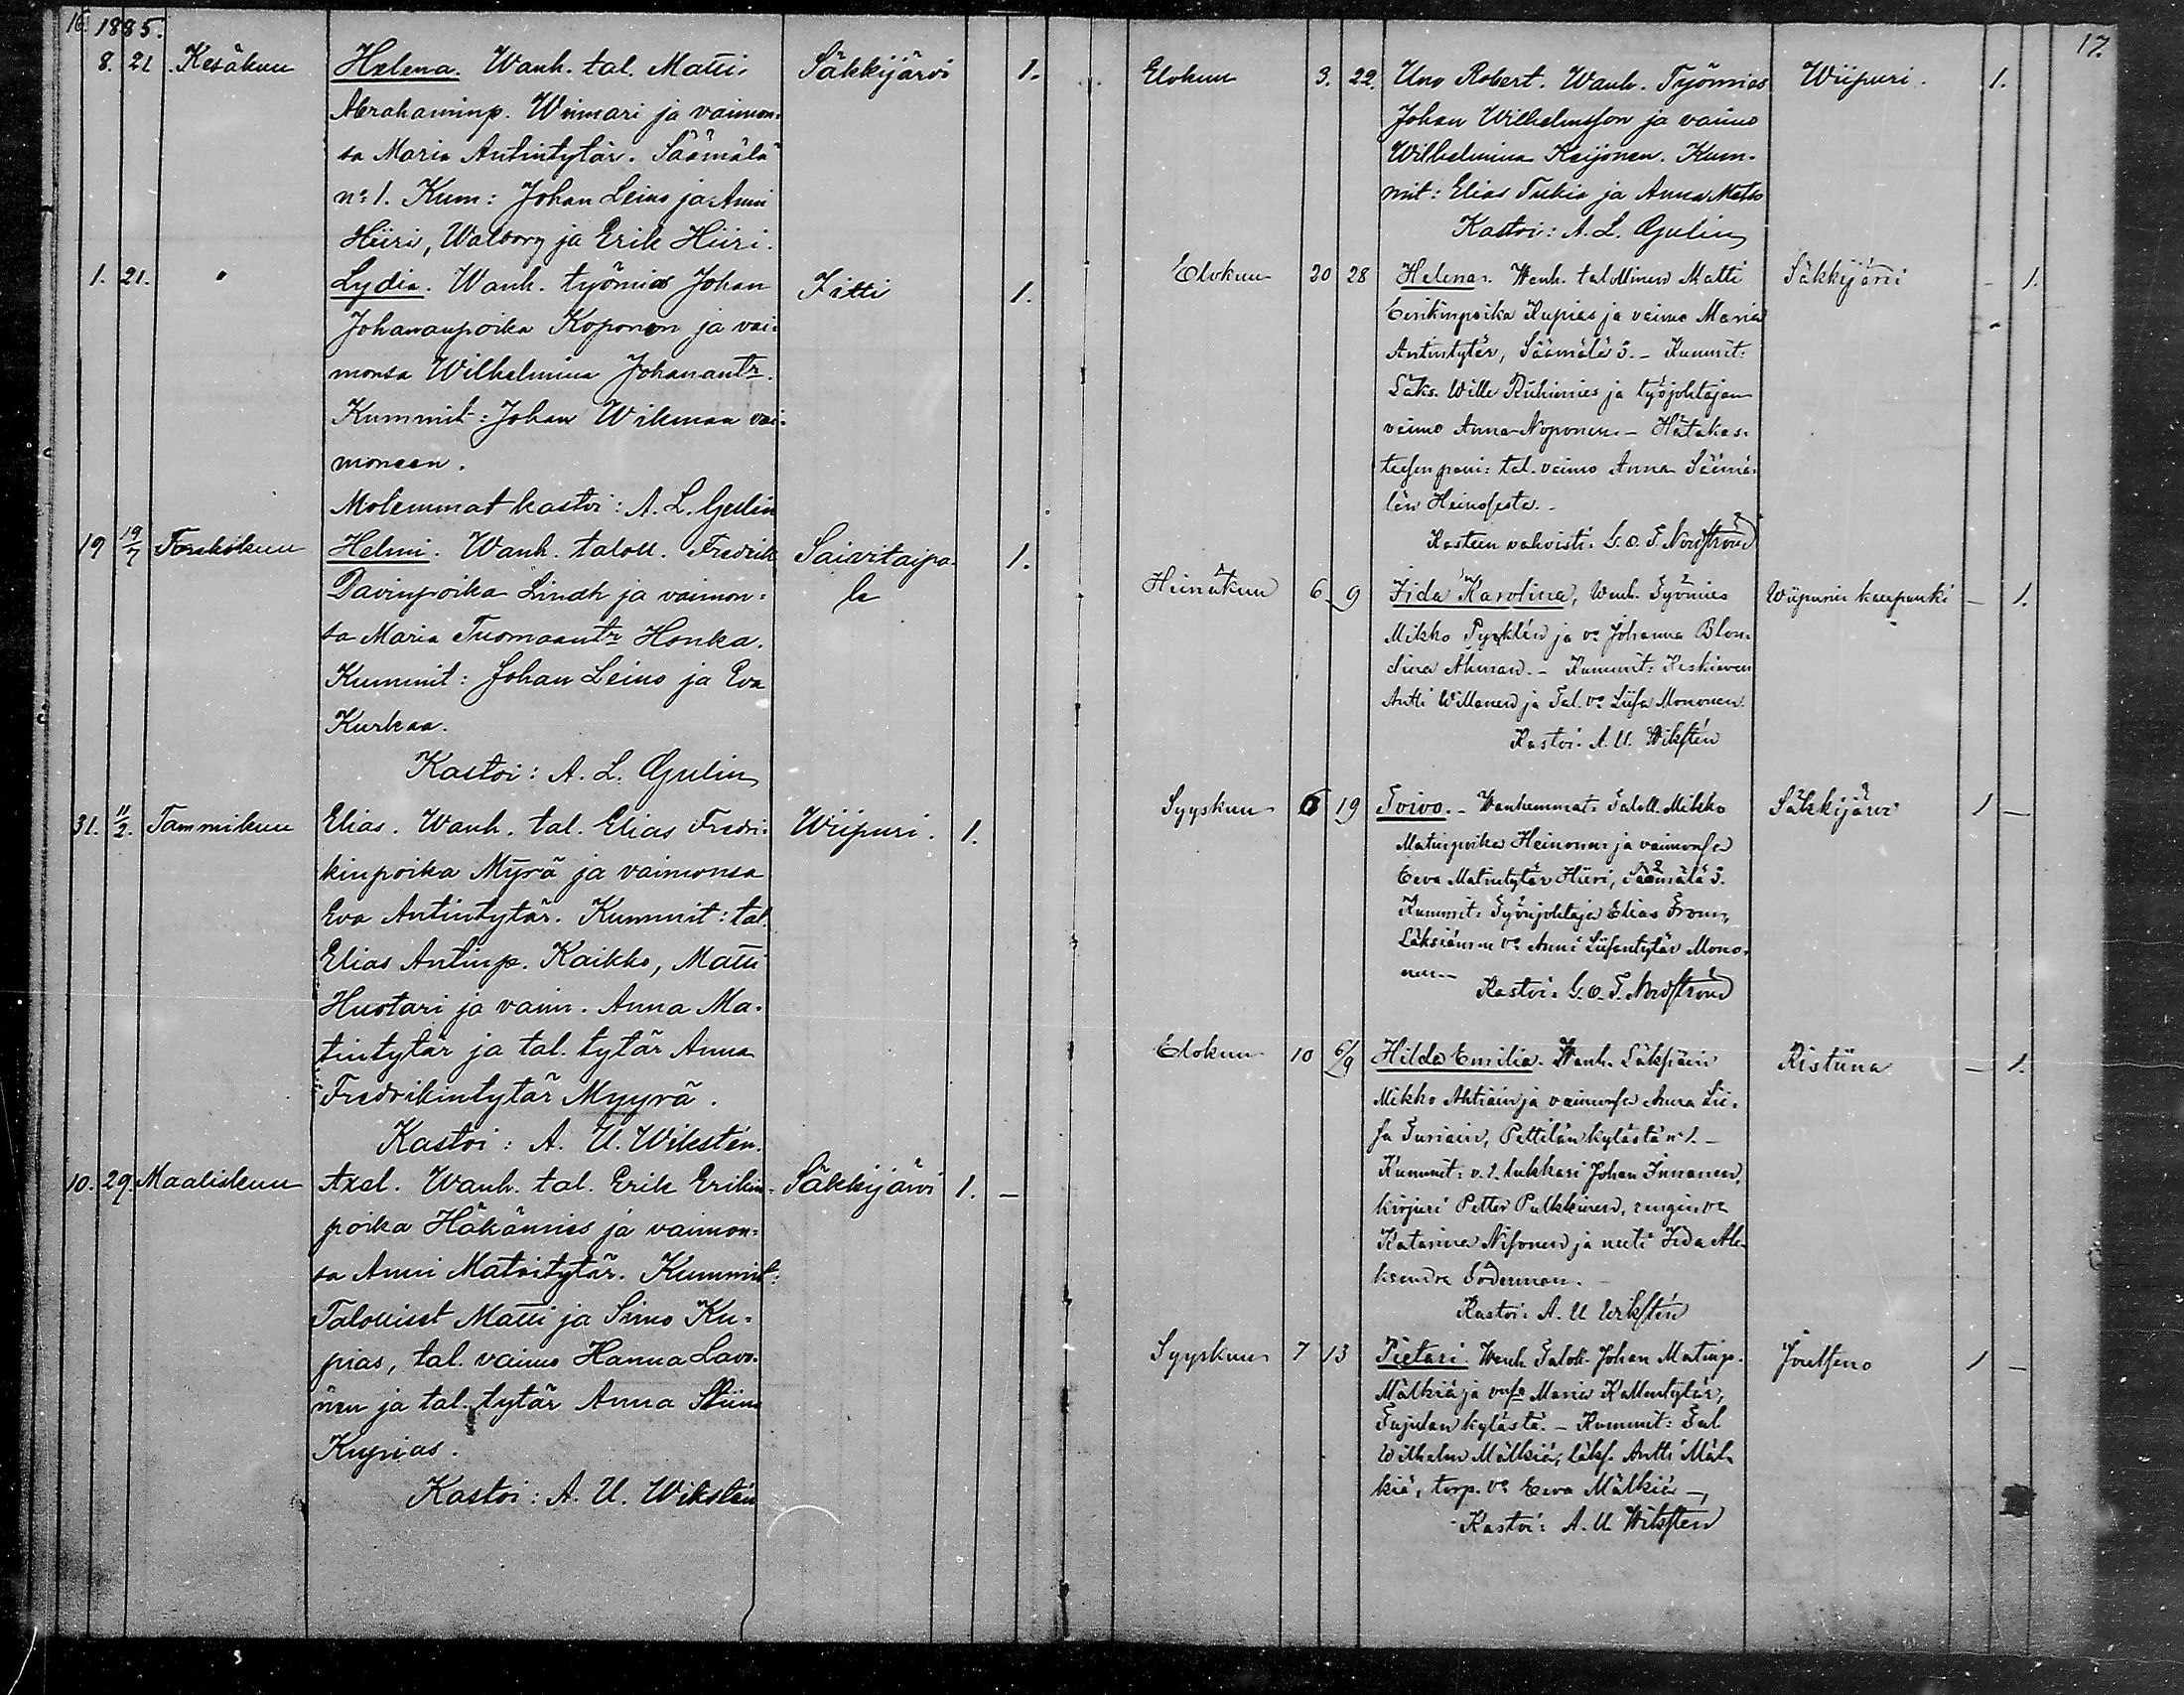 16. 1885.
8. 21 Kesäkuu Helena. Wanh. tal. Matti Säkkijärvi 1.
Abrahaminp. Wiimari ja vaimon-
sa Maria Antintytär. Säämälä
no 1. Kum: Johan Leino ja Anni
Hiiri, Walborg ja Erik Hiiri.
1. 21. " Lydia. Wanh. työmies Johan Iitti 1.
Johananpoika Koponen ja vai-
monsa Wilhelmina Johanantr.
Kummit: Johan Wikman vai-
moneen.
Molemmat kastoi: A. L. Gulin
19 19/7 Toukokuu Helmi. Wanh. taloll. Fredrik Savitaipa- 1.
Davinpoika Lindh ja vaimon- le
sa Maria Tuomaantr Honka.
Kummit: Johan Leino ja Eva
Kurkaa.
Kastoi: A. L. Gulin
31. 11/2. Tammikuu Elias. Wanh. tal. Elias Fredri- Wiipuri. 1.
kinpoika Myrä ja vaimonsa
Eva Antintytär. Kummit: tal.
Elias Antinp. Kaikko, Matti
Huotari ja vaim. Anna Ma-
tintytär ja tal. tytär Anna
Fredrikintytär Myyrä.
Kastoi: A. U. Wikstén.
10. 29. Maaliskuu Axel. Wanh. tal. Erik Erikin- Säkkijärvi 1. –
poika Häkämies ja vaimon-
sa Anni Matintytär. Kummit:
Talolliset Matti ja Simo Ku-
pias, tal. vaimo Hanna Lavo-
nen ja tal. tytär Anna Stiina
Kupias.
Kastoi: A. U. Wikstén
17.
Elokuu 3. 22. Uno Robert. Wanh. Työmies Wiipuri. 1.
Johan Wilhelmsson ja vaimo
Wilhelmina Keijonen. Kum-
mit: Elias Tukia ja Anna Matto
Kastoi: A. L. Gulin
Elokuu 20 28 Helena. Wanh. talollinen Matti Säkkijärvi – 1.
Eerikinpoika Kupias ja vaimo Maria
Antintytär, Säämälä 3. – Kummit:
Läks. Wille Riihimies ja työjohtajan
vaimo Anna Noponen. – Hätäkas-
teesen pani: tal. vaimo Anna Säämä-
län Heinosesta. –
Kasteen vahvisti: G. O. F. Nordström
Heinäkuu 6 9 Iida Karolina, Wanh. Työmies Wiipurin kaupunki – 1.
Mikko Pyyklén ja vo Johanna Blon-
dina Ahman. – Kummit: Keskieven
Antti Willanen ja Tal. vo Liisa Mononen.
Kastoi: A. U. Wikstén
Syyskuu 6 19 Toivo. – Wanhemmat: Taloll. Mikko Säkkijärvi 1 –
Matinpoika Heinonen ja vaimonsa
Eeva Matintytär Hiiri, Säämälä 3.
Kummit: Työnjohtaja Elias From,
Läksiäimen vo Anni Liisantytär Mono-
nen. – Kastoi: G. O. F. Nordström
Elokuu 10 6/9 Hilda Emilia. Wanh. Läksiäin Ristiina – 1.
Mikko Ahtiain ja vaimonsa Anna Lii-
sa Turiain, Pettilän kylästä no 1. –
Kummit: v. t. lukkari Johan Innanen,
kirjuri Petter Pulkkinen, rengin vo
Katarina Nisonen ja neiti Ida Alek-
sandra Söderman. –
Kastoi: A. U. Wikstén
Syyskuu 7 13 Pietari. Wanh. Taloll. Johan Matinp. Joutseno 1 –
Mälkiä ja vmsa Maria Kallentytär,
Tujulan kylästä. – Kummit: Tal
Wilhelm Mälkiä, läks. Antti Mäl-
kiä, torp. vo Eeva Mälkiä –,
Kastoi: A. U. Wikstén